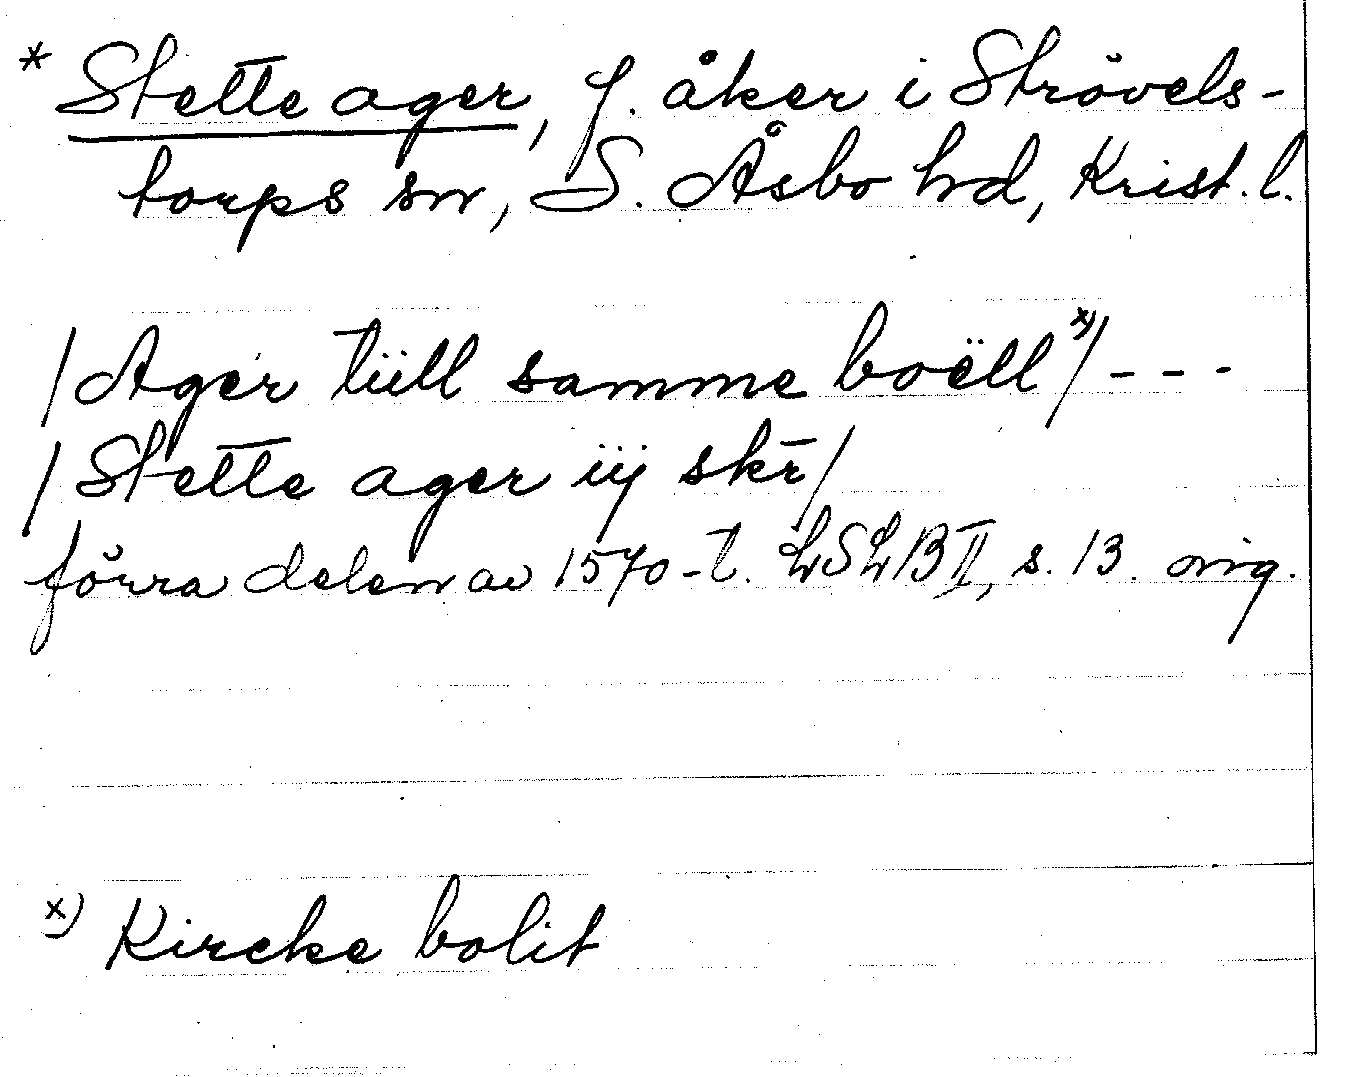 * Stette ager, f. åker i Strövels-
torps sn, S. Åsbo hd, Krist. l.
/Ager tüll samme boëll x)/ - - -
/Stette ager iij skr̄/
förra delen av 1570-t. LSLB II, s. 13. orig.
x) Kircke bolit